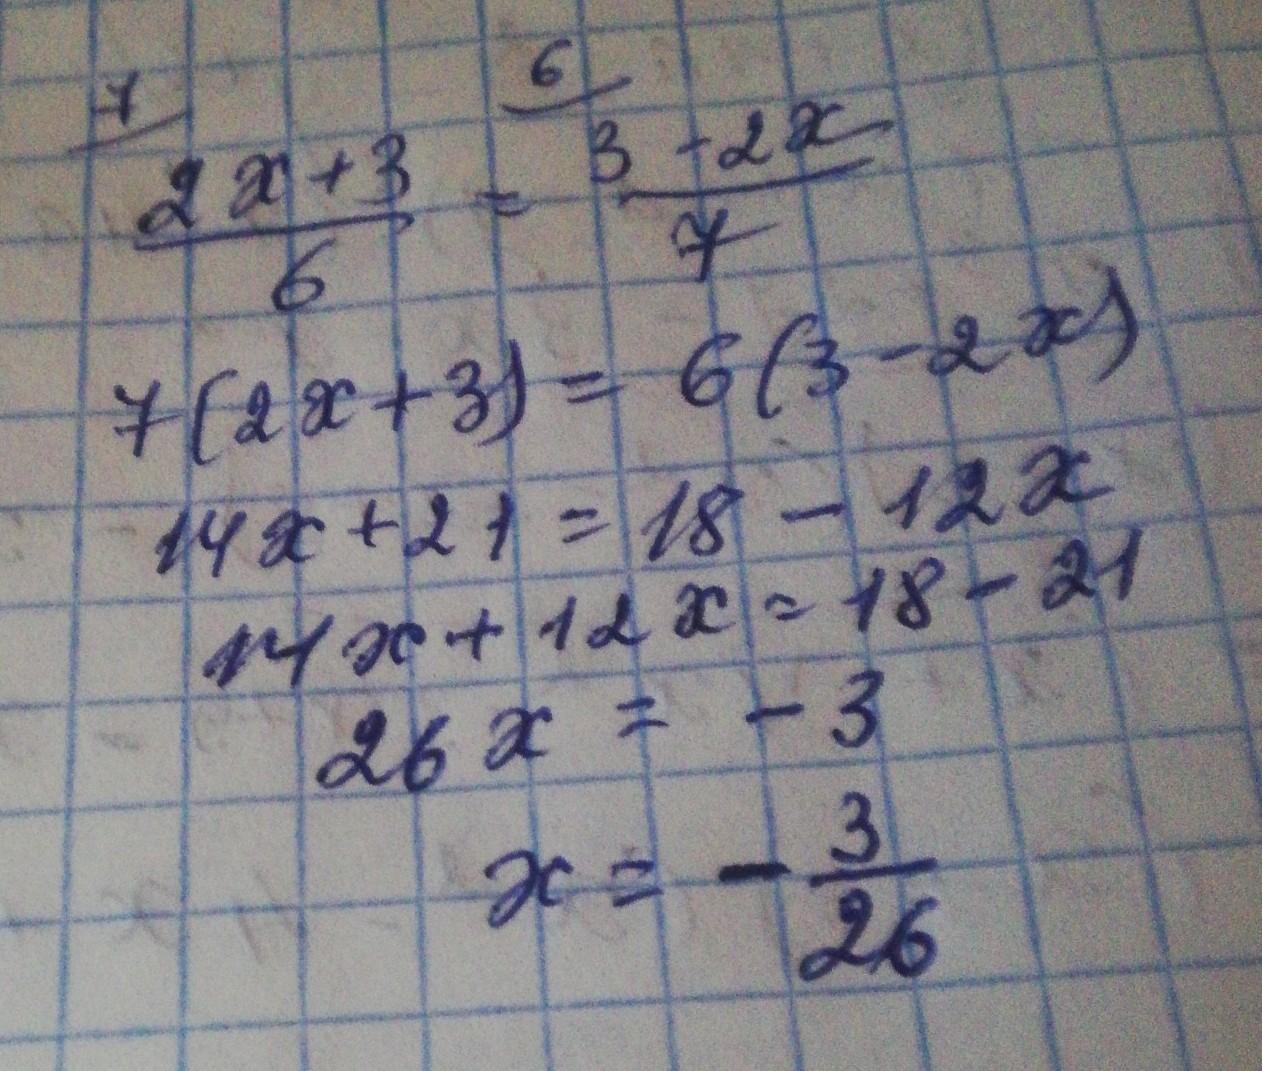 7 6
2x+3 = 3-2x
6 7
7(2x+3) = 6(3-2x)
14x+21 = 18-12x
14x+12x = 18-21
26x = -3
x = - 3/26